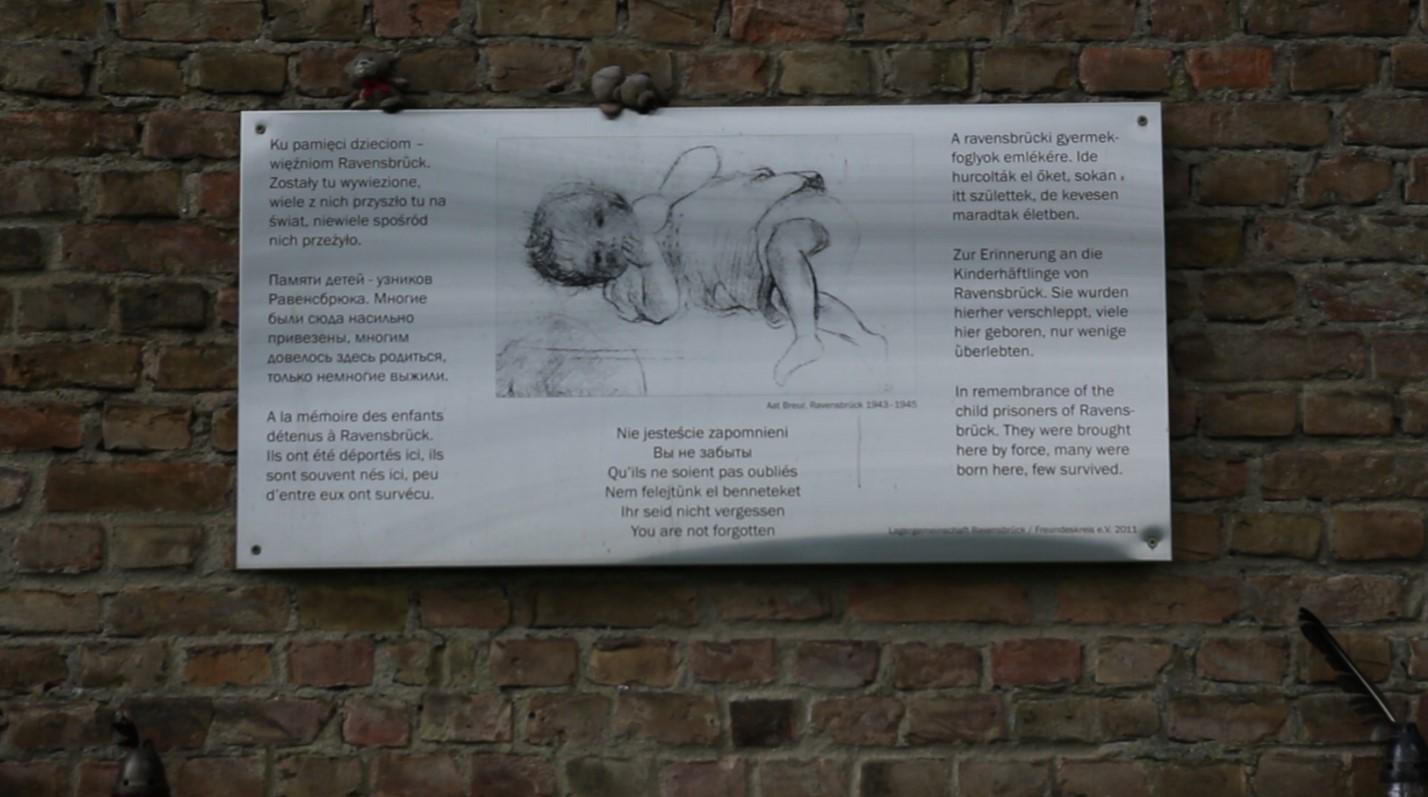 Ku pamięci dzieciom –
więźniom Ravensbrück.
Zostały tu wywiezione,
wiele z nich przyszło tu na
świat, niewiele spośród
nich przeżyło.
Памяти детей - узников
Равенсбрюка. Многие
были сюда насильно
привезены, многим
довелось здесь родиться,
только немногие выжили.
A la mémoire des enfants
détenus à Ravensbrück.
Ils ont été déportés ici, ils
sont souvent nés ici, peu
d'entre eux ont survécu.
Aat Breur, Ravensbrück 1943–1945
Nie jesteście zapomnieni
Вы не забыты
Qu'ils ne soient pas oubliés
Nem felejtünk el benneteket
Ihr seid nicht vergessen
You are not forgotten
A ravensbrücki gyermek-
foglyok emlékére. Ide
hurcolták el őket, sokan
itt születtek, de kevesen
maradtak életben.
Zur Erinnerung an die
Kinderhäftlinge von
Ravensbrück. Sie wurden
hierher verschleppt, viele
hier geboren, nur wenige
überlebten.
In remembrance of the
child prisoners of Ravens-
brück. They were brought
here by force, many were
born here, few survived.
Lagergemeinschaft Ravensbrück / Freundeskreis e.V. 2011